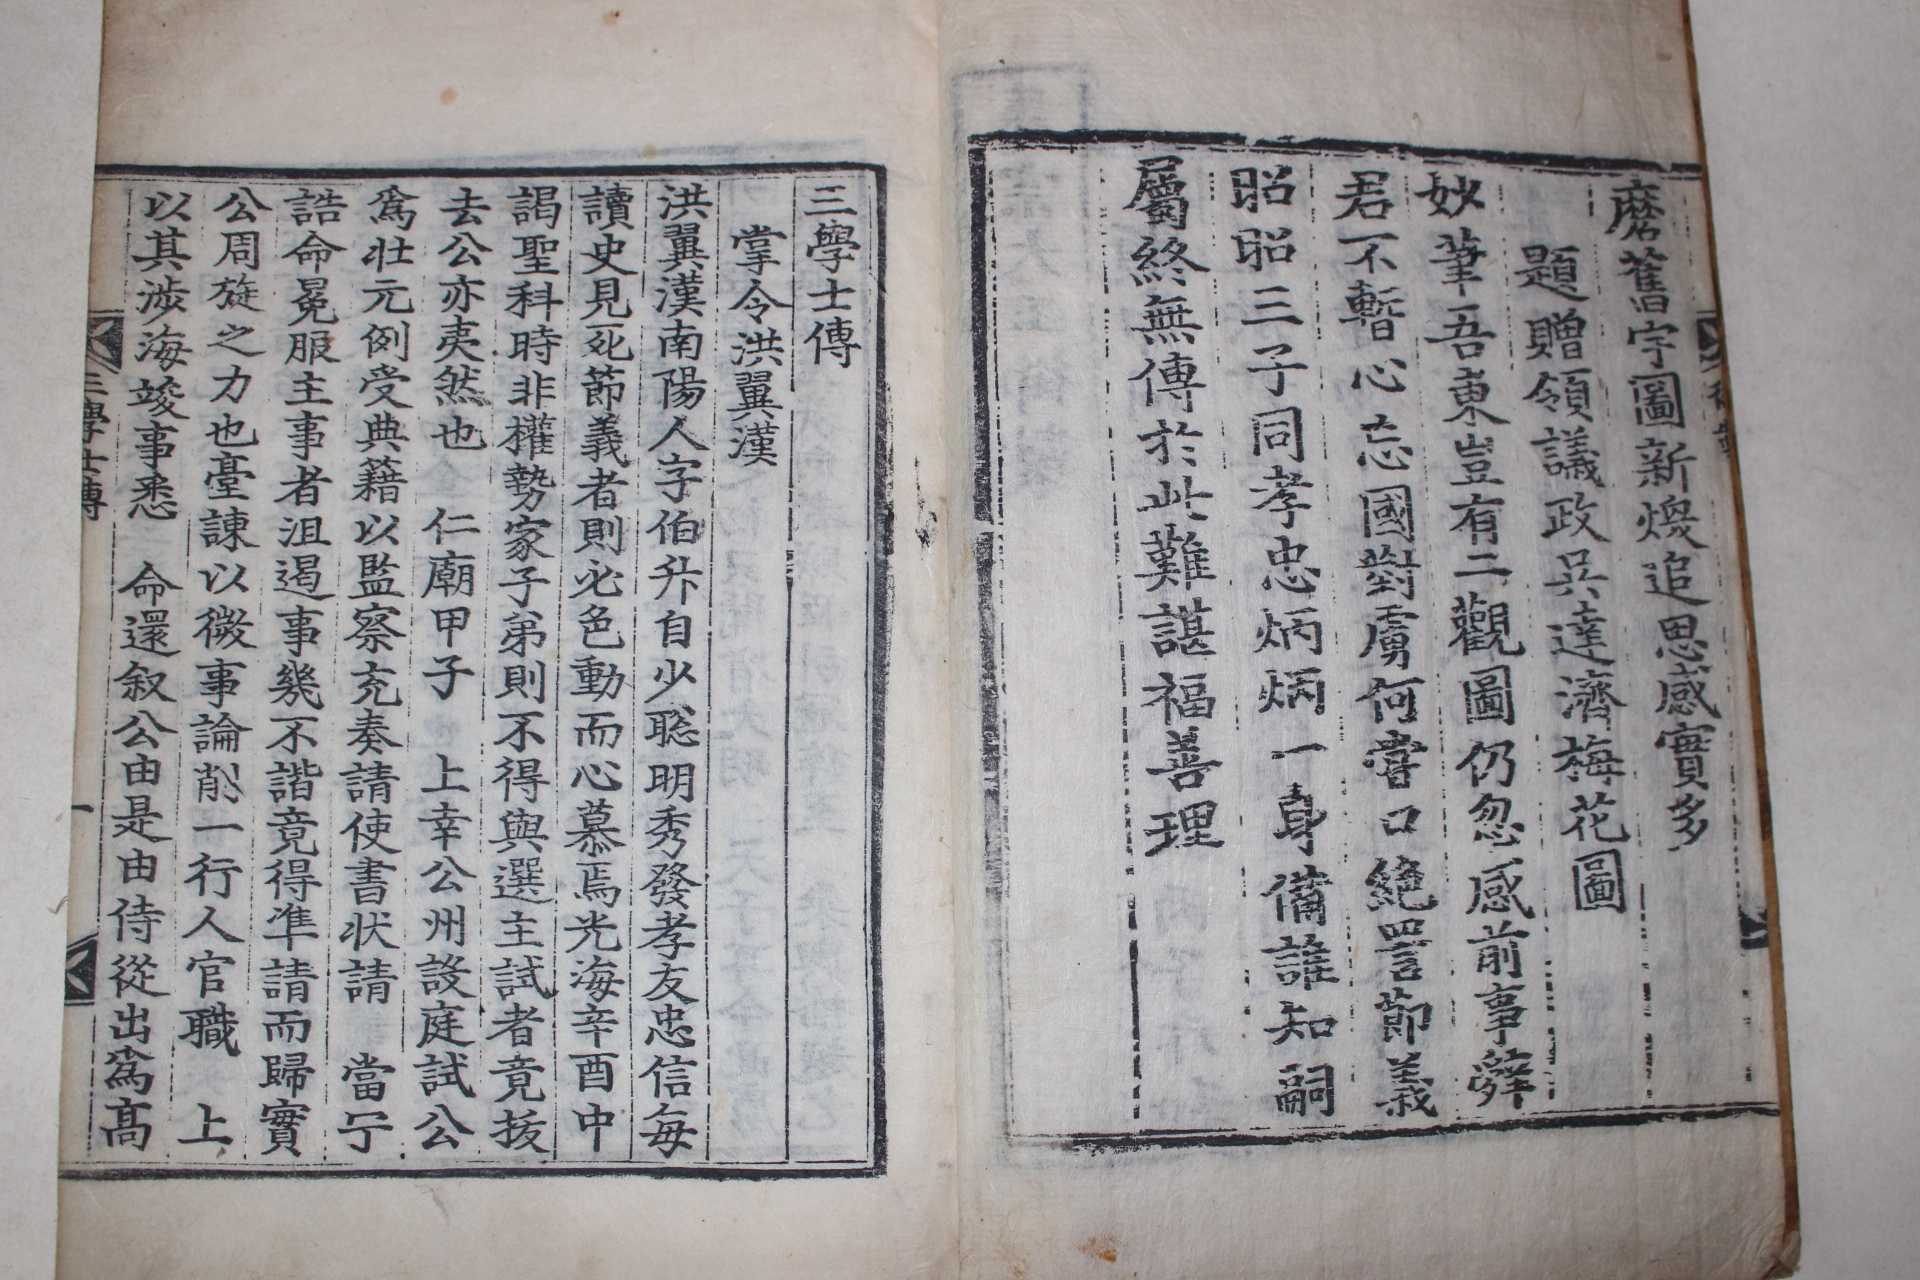 磨舊字圖新煥追思感實多
題贈領議政吳達濟梅花圖
妙筆吾東豈有二觀圖仍忽感前事辭
君不暫心忘國對虜何嘗口絶詈節義
昭昭三子同孝忠炳炳一身備誰知嗣
屬終無傳於此難諶福善理
三學士傳
掌令洪翼漢
洪翼漢南陽人字伯升自少聡明秀發孝友忠信每
讀史見死節義者則必色動而心慕焉光海辛酉中
謁聖科時非權勢家子弟則不得與選主試者竟拔
去公亦夷然也 仁廟甲子 上幸公州設庭試公
爲壯元例受典籍以監察充奏請使書狀請 當宁
誥命冕服主事者沮遏事幾不諧竟得准請而歸實
公周旋之力也臺諫以微事論削一行人官職 上
以其涉海竣事悉 命還叙公由是由侍從出爲高
三學士傳
一